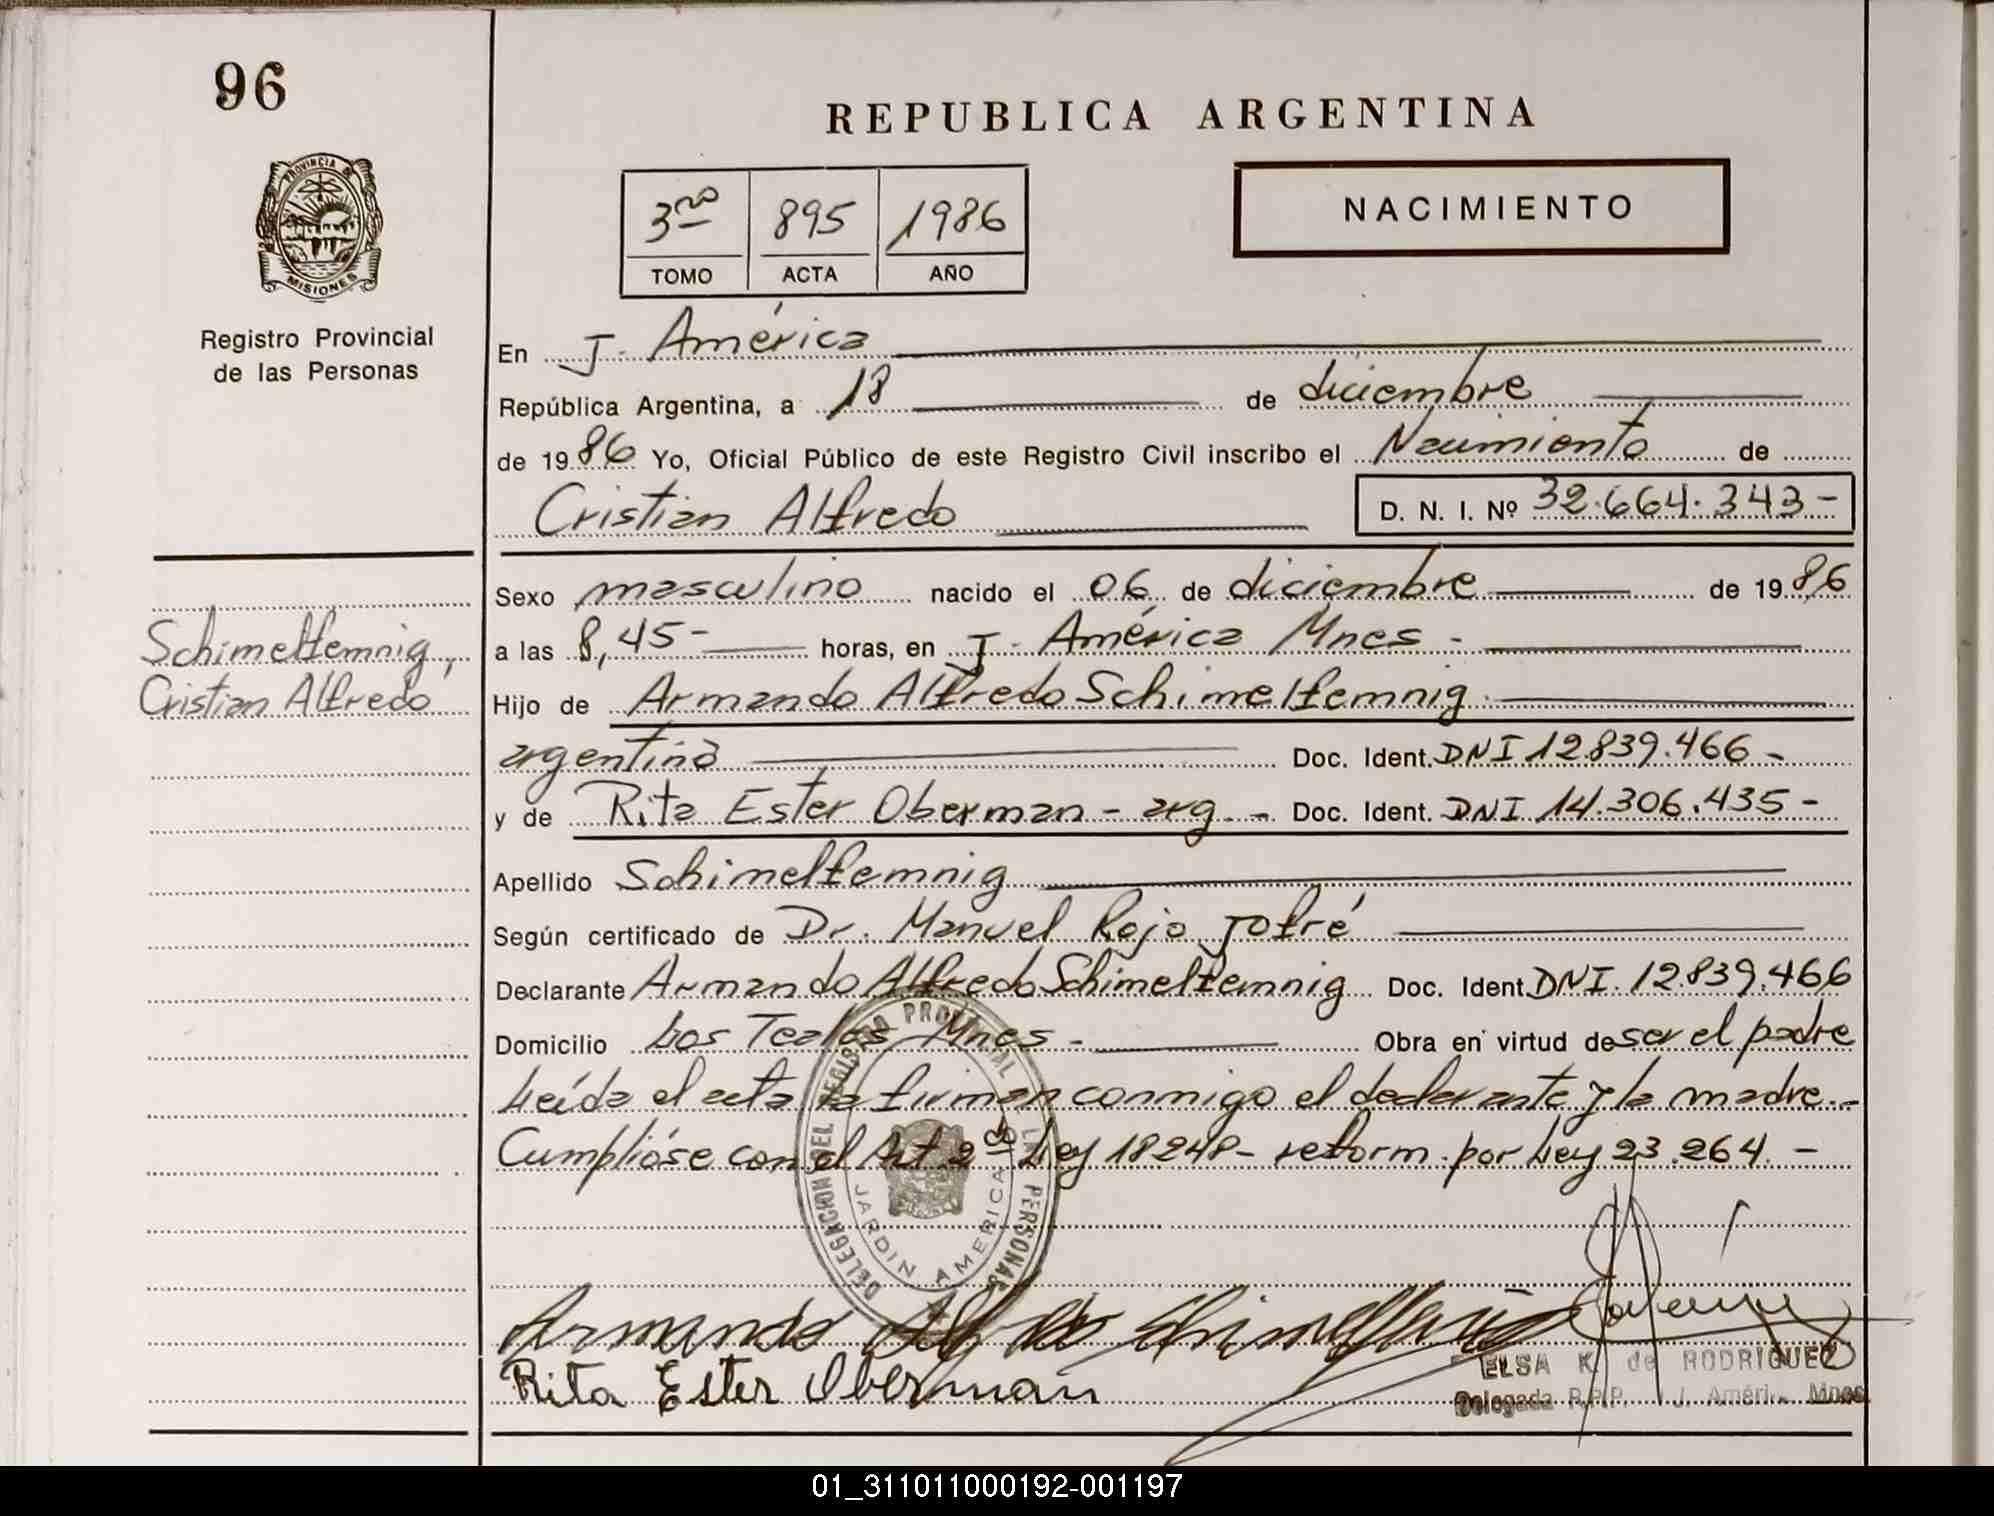 96
REPUBLICA ARGENTINA
PROVINCIA DE
MISIONES
Registro Provincial
de las Personas
3ro 895 1986
TOMO ACTA AÑO
NACIMIENTO
En J. América
República Argentina, a 18 de diciembre
de 1986 Yo, Oficial Público de este Registro Civil inscribo el Nacimiento de
Cristian Alfredo D. N. I. Nº 32.664.343-
Sexo masculino nacido el 06 de diciembre de 1986
a las 8,45- horas, en J. América Mnes -
Schimelfemnig,
Cristian Alfredo
Hijo de Armando Alfredo Schimelfemnig.
argentina Doc. Ident. DNI 12.839.466-
y de Rita Ester Oberman - arg. - Doc. Ident. DNI 14.306.435-
Apellido Schimelfemnig
Según certificado de Dr. Manuel Rojo Jofré
Declarante Armando Alfredo Schimelfemnig Doc. Ident. DNI. 12.839.466
Domicilio Los Teales Mnes - Obra en virtud de ser el padre
Leída el acta la firman conmigo el declarante y la madre.-
Cumplióse con el Art. 2do Ley 18248- reform. por Ley 23.264. -
DELEGACION DEL REGISTRO PROVINCIAL LAS PERSONAS
JARDIN AMERICA
Armando Alfredo Schimelfemnig
Rita Ester Oberman
ELSA K. de RODRIGUEZ
Delegada R.P.P. J. Améri. Mnes
01_311011000192-001197